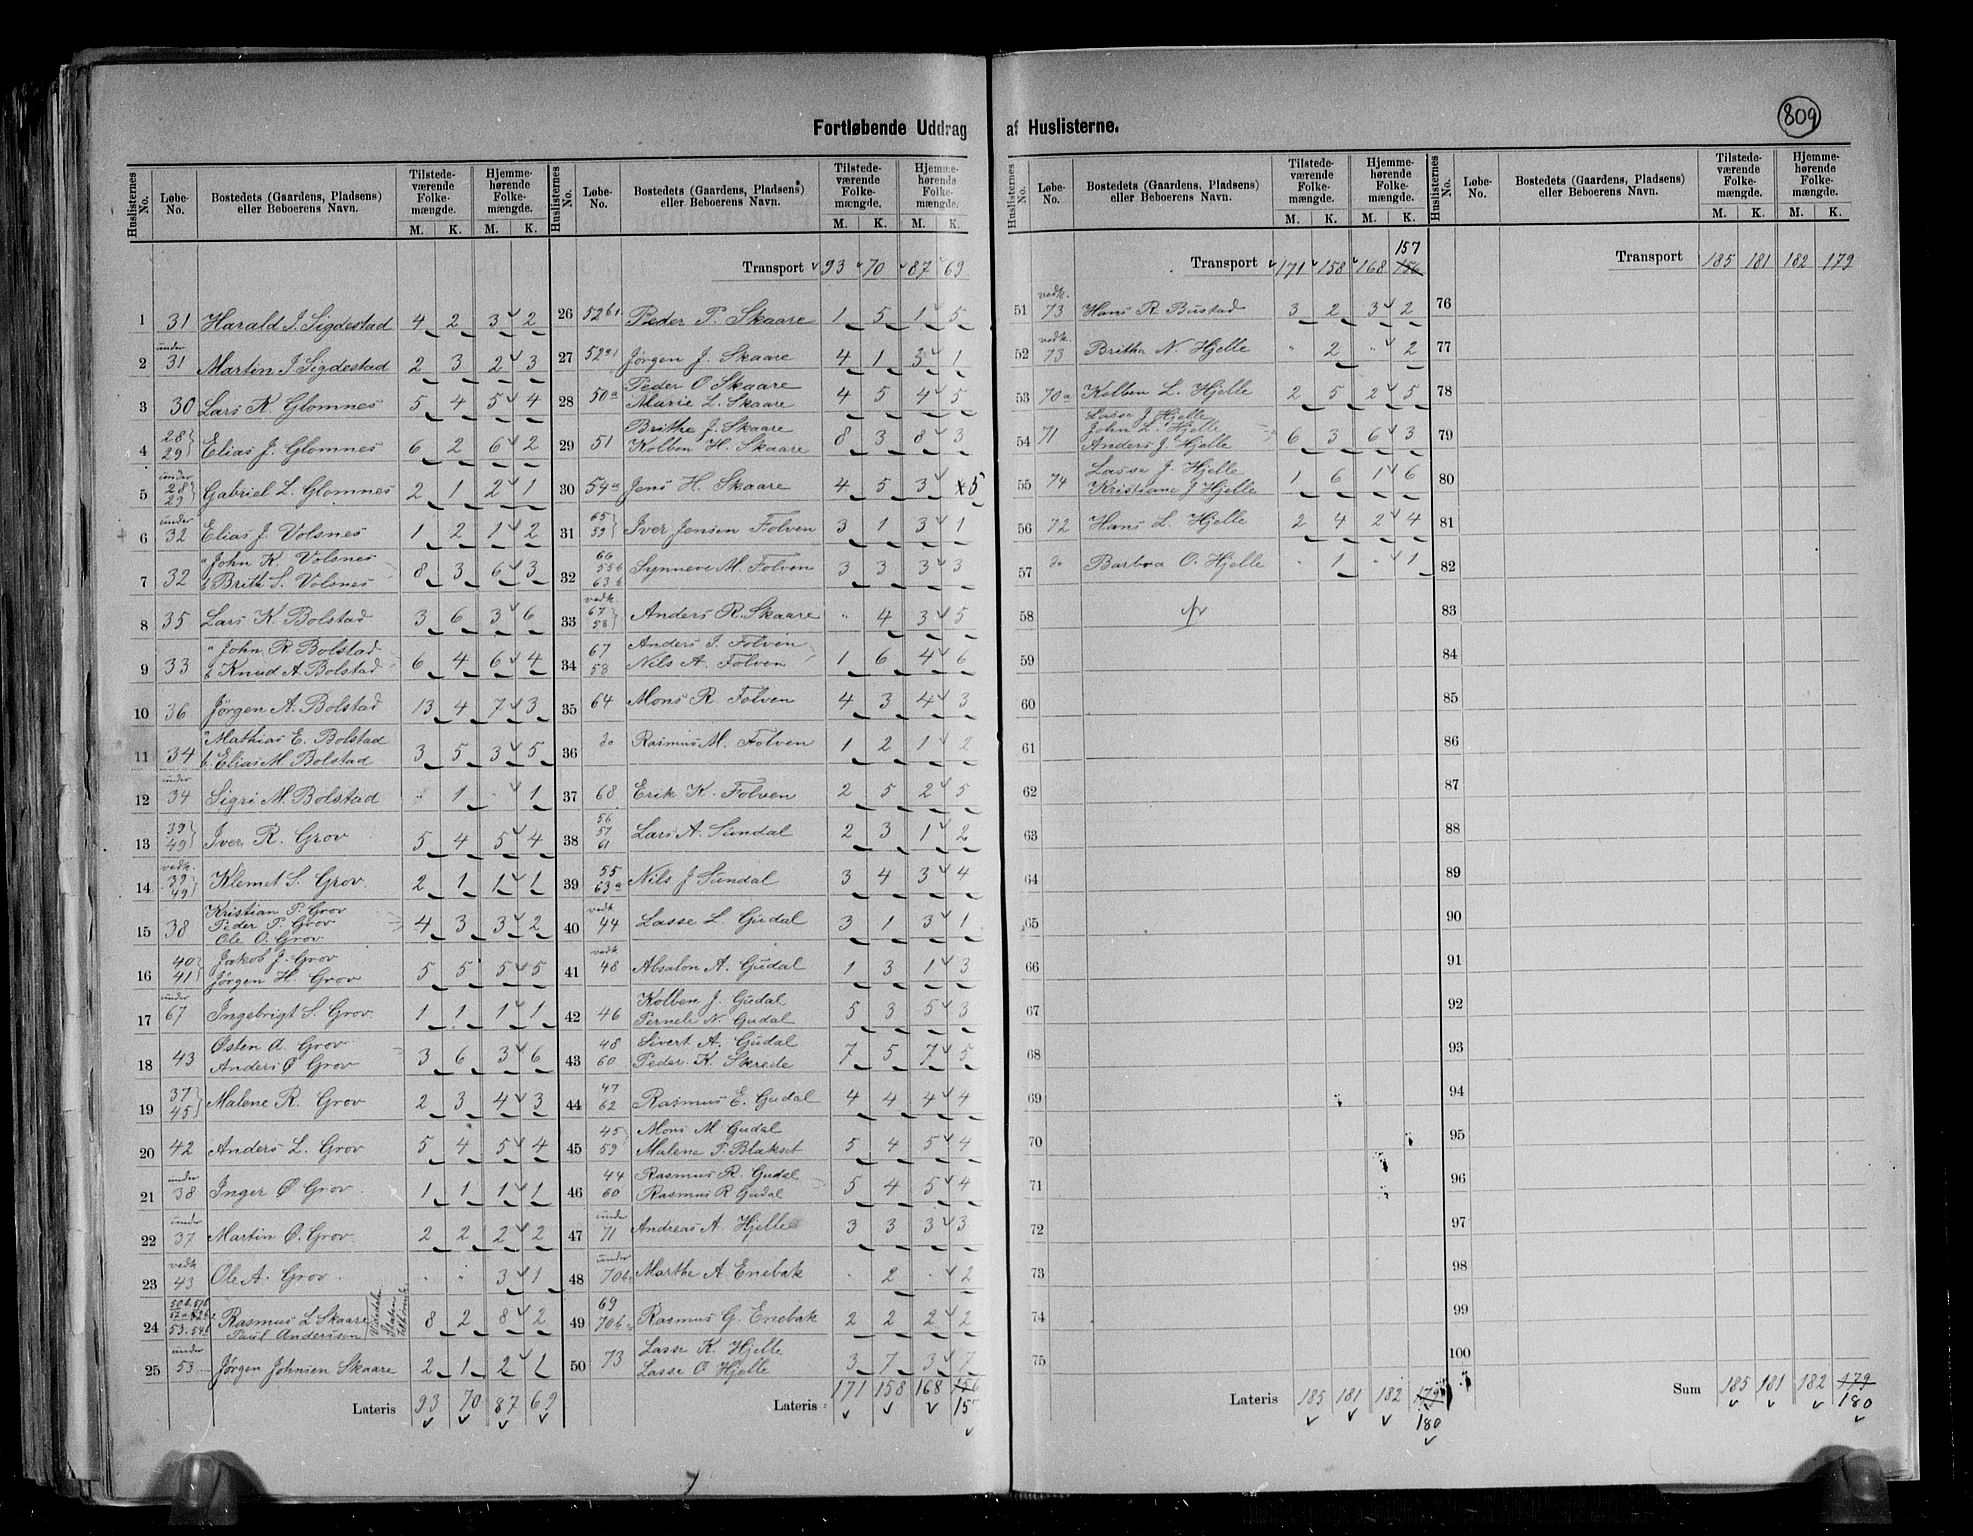 809
Fortløbende Uddrag af Huslisterne.
Huslisternes No. Løbe-No. Bostedets (Gaardens, Pladsens) eller Beboerens Navn. Tilstedeværende Folkemængde. M. K. Hjemmehørende Folkemængde. M. K.
1 31 Harald J. Sigdestad 4 2 3 2
2 under 31 Martin J Sigdestad 2 3 2 3
3 30 Lars K. Glomnes 5 4 5 4
4 28 29 Elias J. Glomnes 6 2 6 2
5 under 28 29 Gabriel L. Glomnes 2 1 2 1
6 under 32 Elias J. Volsnes 1 2 1 2
7 32 a John K. Volsnes
b Brith S. Volsnes 8 3 6 3
8 35 Lars K. Bolstad 3 6 3 6
9 33 a John R. Bolstad
b Knud A Bolstad 6 4 6 4
10 36 Jørgen A. Bolstad 13 4 7 3
11 34 a Mathias E. Bolstad
b. Elias M. Bolstad 3 5 3 5
12 under 34 Sigri M. Bolstad " 1 " 1
13 39 49 Iver R. Grov 5 4 5 4
14 vedk. 39 49 Klemet S. Grov. 2 1 1 1
15 38 Kristian P. Grov
Peder P. Grov
Ole O. Grov 4 3 3 2
16 40 41 Jakob J. Grov
Jørgen H. Grov 5 5 5 5
17 under 67 Ingebrigt S. Grov. 1 1 1 1
18 43 Østen A. Grov
Anders Ø Grov 3 6 3 6
19 37 45 Malene R. Grov 2 3 4 3
20 42 Anders L. Grov 5 4 5 4
21 under 38 Inger Ø Grov 1 1 1 1
22 under 37 Martin O. Grov 2 2 2 2
23 vedk 43 Ole A. Grov " " 3 1
24 53. 54b Rasmus L Skaare
Paul Andersen 8 2 8 2
25 under 53 Jørgen Johnsen Skaare 2 1 2 1
Lateris 93 70 87 69
Huslisternes No. Løbe-No. Bostedets (Gaardens, Pladsens) eller Beboerens Navn. Tilstedeværende Folkemængde. M. K. Hjemmehørende Folkemængde. M. K.
Transport 93 70 87 69
26 52b1 Peder P. Skaare 1 5 1 5
27 52a1 Jørgen J. Skaare 4 1 3 1
28 50a Peder O Skaare
Marie L. Skaare 4 5 4 5
29 51 Brithe J. Skaare
Kolben H. Skaare 8 3 8 3
30 54a Jens H. Skaare 4 5 3 5
31 65 59 Iver Jensen Folven 3 1 3 1
32 66 55b 63b Synneve M. Folven 3 3 3 3
33 vedk. 67 58 Anders R. Skaare " 4 3 5
34 67 58 Anders I. Folven
Nils A. Folven 1 6 4 6
35 64 Mons R. Folven 4 3 4 3
36 do Rasmus M. Folven 1 2 1 2
37 68 Erik K. Folven 2 5 2 5
38 56 57 61 Lars A. Sundal 2 3 1 2
39 55 63a Nils J Sundal 3 4 3 4
40 vedk 44 Lasse L. Gudal 3 1 3 1
41 vedk 48 Absalon A. Gudal 1 3 1 3
42 46 Kolben J. Gudal
Pernele N. Gudal 5 3 5 3
43 48 60 Sivert A. Gudal
Peder K. Skrede 7 5 7 5
44 47 62 Rasmus E. Gudal 4 4 4 4
45 45 59 Mons M Gudal
Malene P. Blakset 5 4 5 4
46 44 60 Rasmus R. Gudal
Rasmus R Gudal 5 4 5 4
47 under 71 Andreas A. Hjelle 3 3 3 3
48 under 70b Marthe A Enebak " 2 " 2
49 69 70b Rasmus G. Enebak 2 2 2 2
50 73 Lasse K. Hjelle
Lasse O. Hjelle 3 7 3 7
Lateris 171 158 168 156
15
Huslisternes No. Løbe-No. Bostedets (Gaardens, Pladsens) eller Beboerens Navn. Tilstedeværende Folkemængde. M. K. Hjemmehørende Folkemængde. M. K.
157
Transport 171 158 168 156
51 vedk. 73 Hans R. Bustad 3 2 3 2
52 vedk. 73 Brithe N. Hjelle " 2 " 2
53 70a Kolben L. Hjelle 2 5 2 5
54 71 Lasse J. Hjelle
John L. Hjelle
Anders J. Hjelle 6 3 6 3
55 74 Lasse J. Hjelle
Kristiane J Hjelle 1 6 1 6
56 72 Hans L. Hjelle 2 4 2 4
57 do Barbra O. Hjelle " 1 " 1
58
59
60
61
62
63
64
65
66
67
68
69
70
71
72
73
74
75
Lateris 185 181 182 179
180
Huslisternes No. Løbe-No. Bostedets (Gaardens, Pladsens) eller Beboerens Navn. Tilstedeværende Folkemængde. M. K. Hjemmehørende Folkemængde. M. K.
Transport 185 181 182 179
76
77
78
79
80
81
82
83
84
85
86
87
88
89
90
91
92
93
94
95
96
97
98
99
100
Sum 185 181 182 179
180